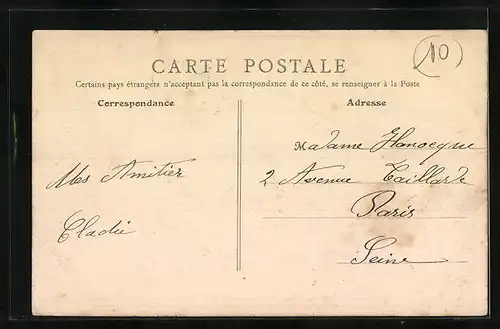 10
CARTE POSTALE
Certains pays étrangers n'acceptant pas la correspondance de ce côté, se renseigner à la Poste
Correspondance
Adresse
Mes Amitier
Madame Hanocque
2 Avenue Taillade
Paris
Seine